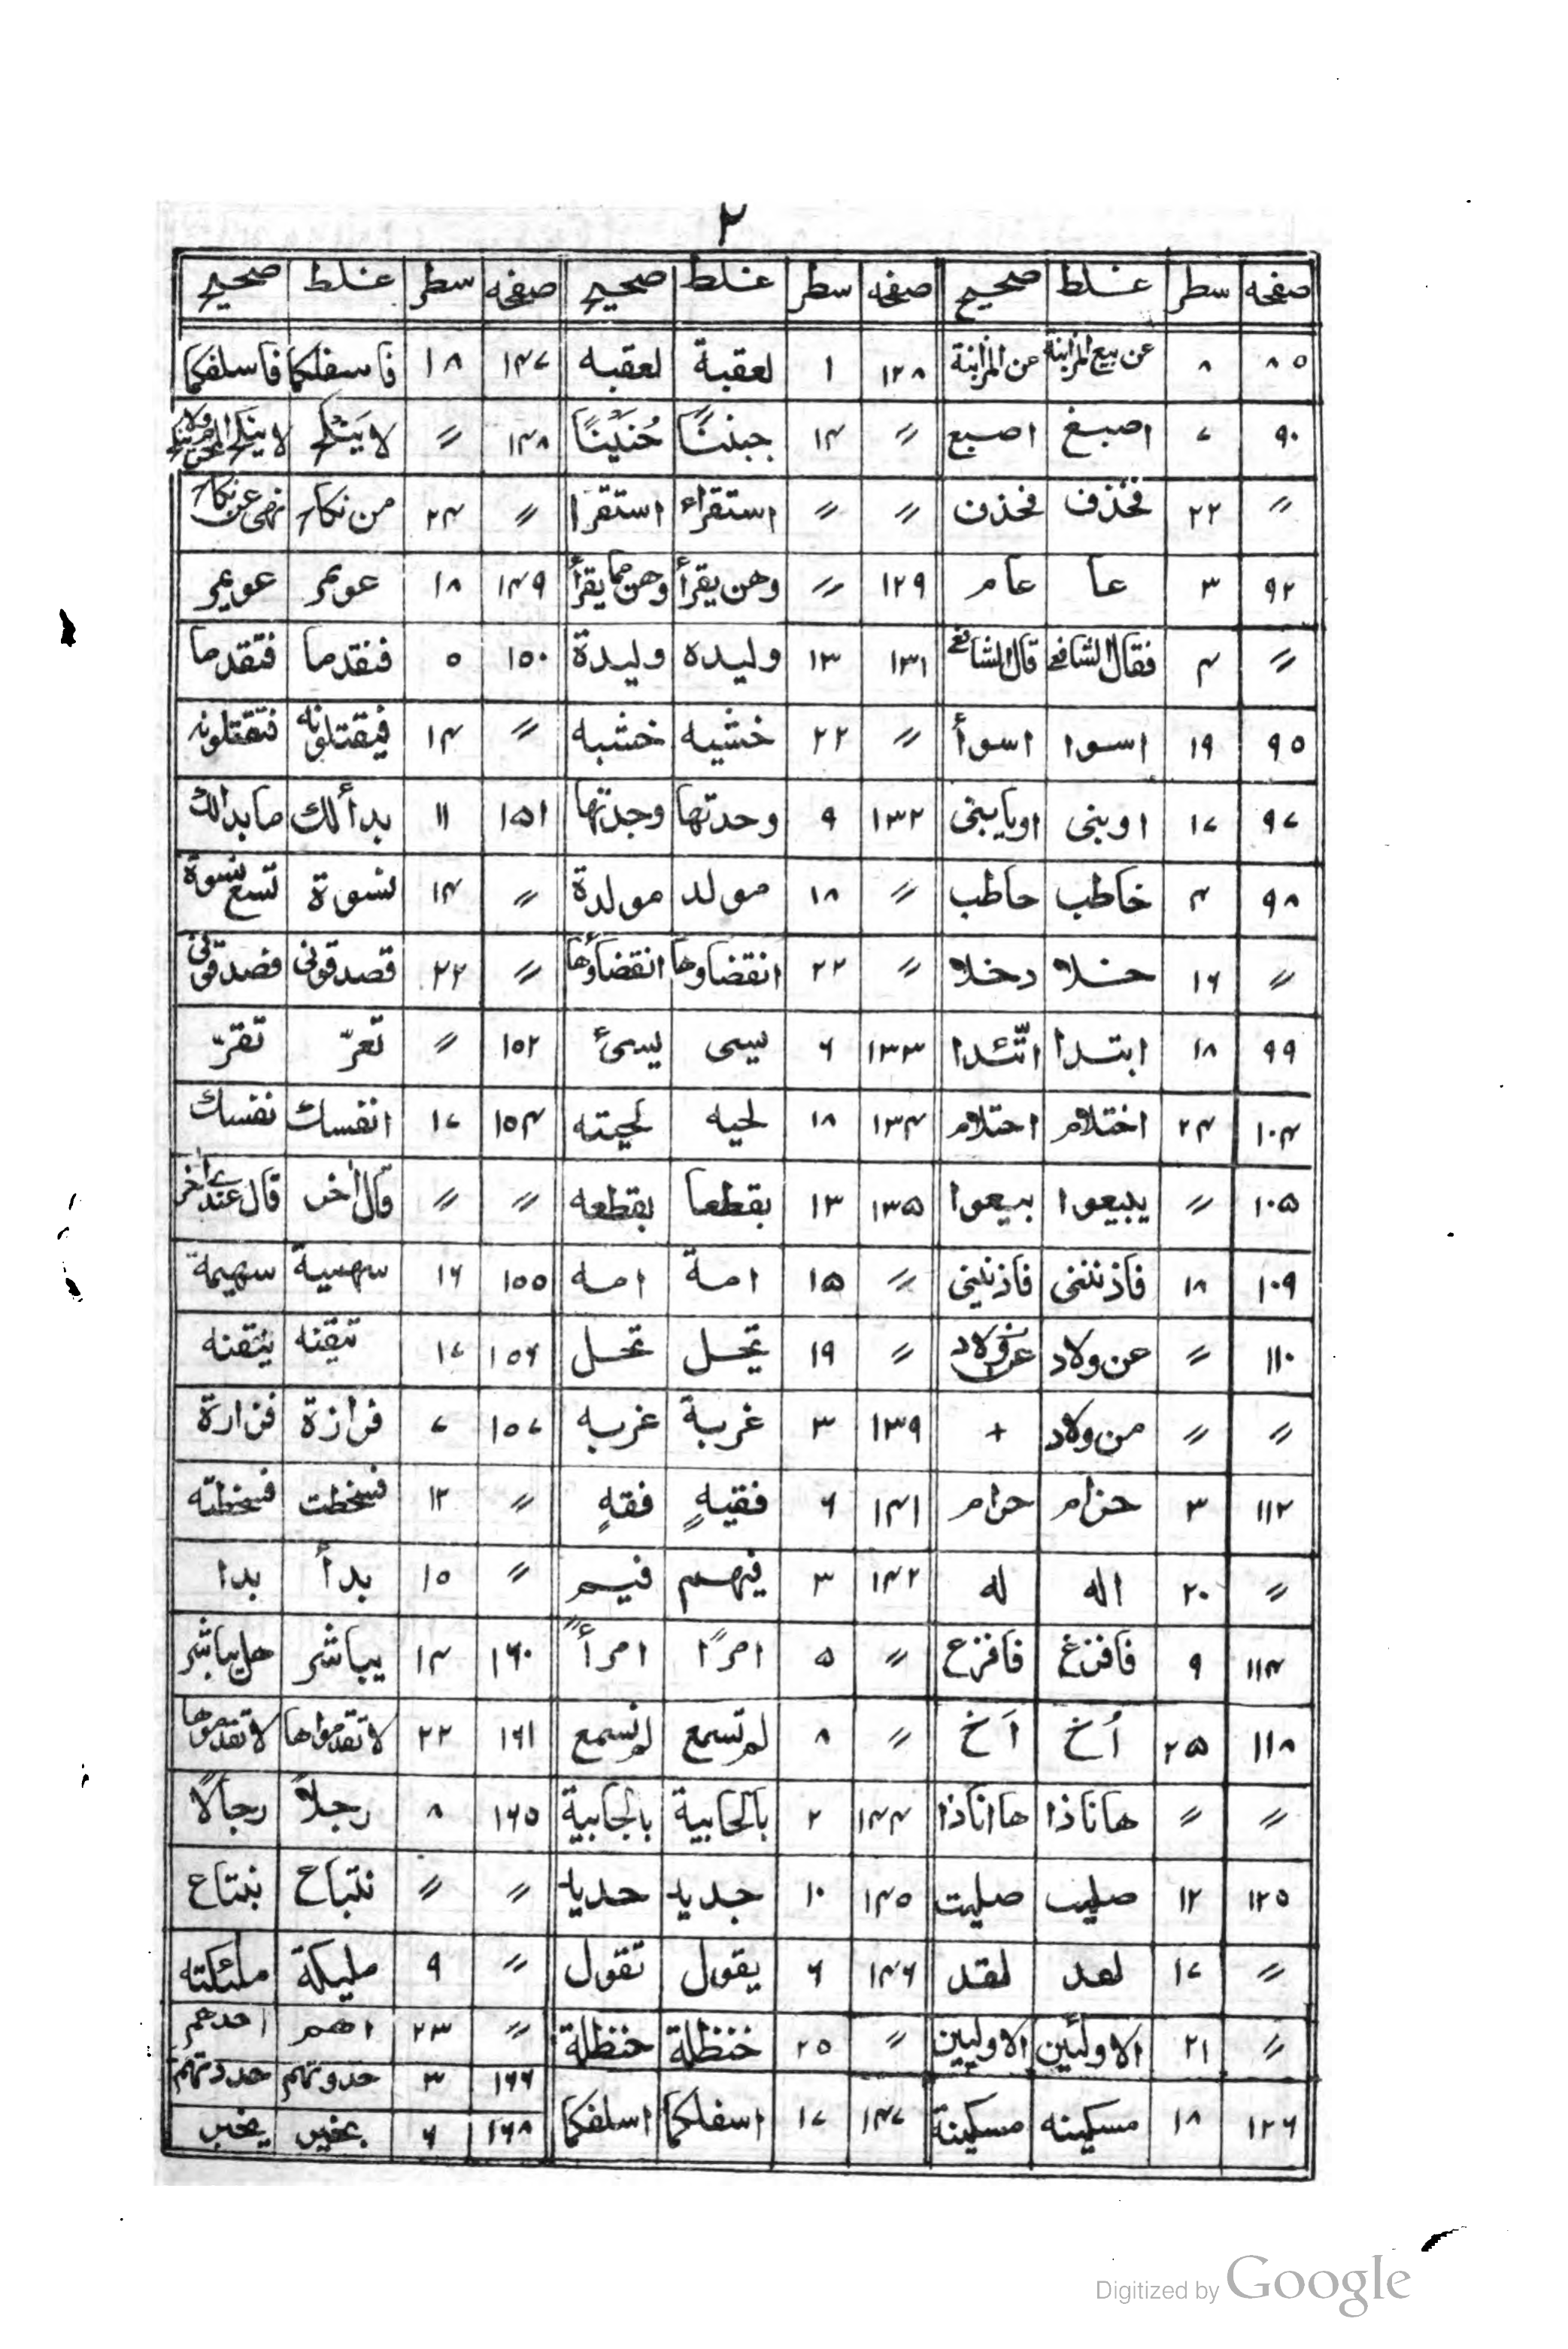 ٢
صفحه سطر غلط صحیح صفحه سطر غلط صحیح صفحه سطر غلط صحیح
٨٥ ٨ عن بيع المزابنة عن المزابنة ١٢٨ ١ لعقبة لعقبه ١۴٧ ١٨ فاسفلكما فاسلفكما
٩٠ ٧ اصبغ اصبع 〃 ١۴ ١۴٨ 〃 لا ينكح
〃 ٢٢ فخذف 〃 〃 استقراء استقرا 〃 ٢۴ من نكاح نهى عن نكاح
٩٢ ٣ عا عامر ١٢٩ 〃 وهن يقرأ وهن مما يقرأ ١۴٩ ١٨ عويمر
〃 ۴ فقال الشافعى قال الشافعى ١٣١ ١٣ وليده وليدة ١٥٠ ٥ فنقدما فتقدما
٩٥ ١٩ اسوا اسوأ 〃 ٢٢ خشيه خشبه 〃 ١۴ فيقتلونه فتقتلونه
٩٧ ١٧ اوبنى ١٣٢ ٩ وحدتها وجدتها ١٥١ ١١ بدألك ما بدالك
٩٨ ۴ خاطب حاطب 〃 ١٨ مولد مولدة 〃 ١۴ نسوة تسع نسوة
〃 ١٦ دخلا 〃 ٢٢ انقضاوها انقضاؤها 〃 ٢٢ قصدقونى فصدقونى
٩٩ ١٨ ابتدا اتّئدا ١٣٣ ٦ يسى يسئ ١٥٢ 〃 تعرّ تقرّ
١٠۴ ٢۴ اختلام احتلام ١٣۴ ١٨ لحيه لحيته ١٥۴ ١٧ انفسك نفسك
١٠٥ 〃 يبيعوا بيعوا ١٣٥ ١٣ بقطعا بقطعه 〃 〃 قال اخر
١٠٩ ١٨ فاذننى فاذنينى 〃 ١٥ امة امه ١٥٥ ١٦ سهيمة
١١٠ 〃 عن ولاد 〃 ١٩ يحل تحل ١٥٦ ١٧ تيقنه
〃 〃 من ولاد + ١٣٩ ٣ غربة غربه ١٥٧ ٧ فرازة فزارة
١١٢ ٣ حزام حرام ١۴١ ٦ فقيهٍ فقهٍ 〃 ١٢ فسخطت فسخطته
〃 ٢٠ اله له ١۴٢ ٣ فيهم فيم 〃 ١٥ بدأ بدا
١١۴ ٩ فافزغ فافزع 〃 ٥ امرًا امرأً ١٦٠ ١۴ يباشر هل يباشر
١١٨ ٢٥ أُخ اَخ 〃 ٨ لم تسمع لم نسمع ١٦١ ٢٢ لا تقدمواها لا تقدموها
〃 〃 هاناذا ها اناذا ١۴۴ ٢ بالحابية بالجابية ١٦٥ ٨ رجلاً رجالًا
١٢٥ ١٢ صليب صليت ١۴٥ ١٠ جديد حديد 〃 〃 نتباح نبتاع
〃 ١٧ لعد لقد ١۴٦ ٦ يقول تقول 〃 ٩ مليكة ملئكته
〃 ٢١ الاولئين الاوليين 〃 ٢٥ خنظلة حنظلة 〃 ٢٣ اهم احدهم
١٢٦ ١٨ مسكينه مسكينة ١۴٧ ١٧ اسفلكما اسلفكما ١٦٦ ٣ حدوتهم حددتهم
١٦٨ ٦
Digitized by Google